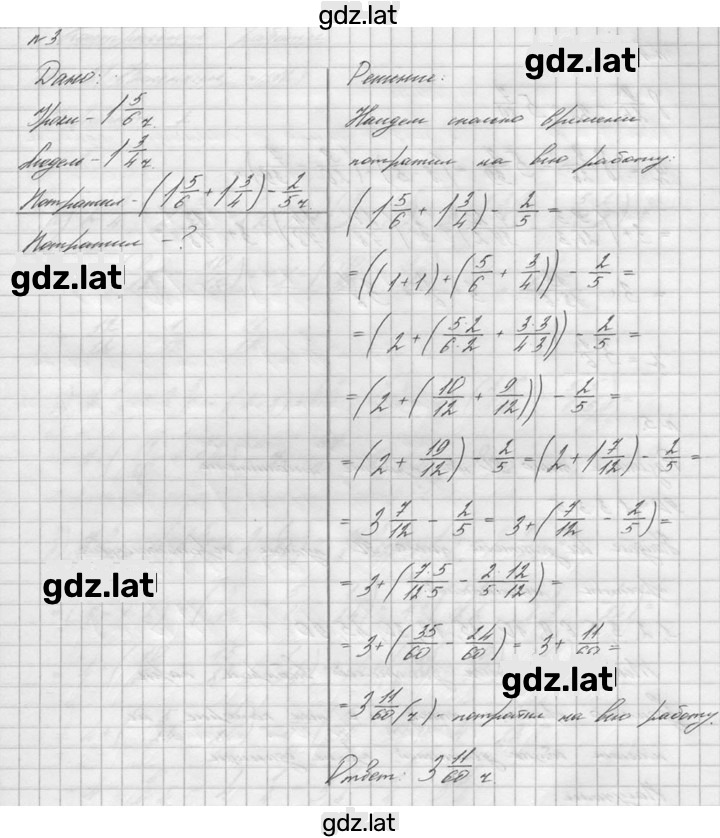 gdz.lat
№ 3
gdz.lat
Дано:
Уроки - 1 5/6 ч.
Модель - 1 3/4 ч.
Потратил - (1 5/6 + 1 3/4) - 2/5 ч.
Потратил - ?
gdz.lat
Решение:
Найдем сколько времени
потратил на всю работу:
(1 5/6 + 1 3/4) - 2/5 =
= ((1+1) + (5/6 + 3/4)) - 2/5 =
= (2 + (5·2/6·2 + 3·3/4·3)) - 2/5 =
= (2 + (10/12 + 9/12)) - 2/5 =
= (2 + 19/12) - 2/5 = (2 + 1 7/12) - 2/5 =
= 3 7/12 - 2/5 = 3 + (7/12 - 2/5) =
gdz.lat
= 3 + (7·5/12·5 - 2·12/5·12) =
= 3 + (35/60 - 24/60) = 3 + 11/60 =
gdz.lat
= 3 11/60 (ч) - потратил на всю работу.
Ответ: 3 11/60 ч.
gdz.lat